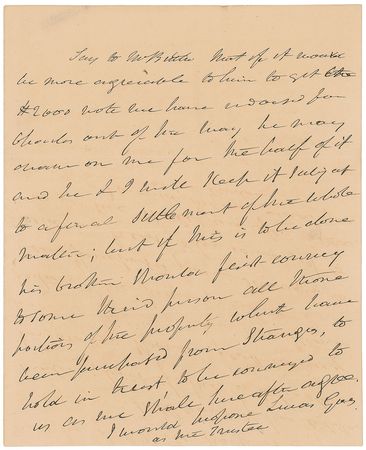 Say to Mr Bittle that if it would
be more agreeable to him to get the
$2000 note we have endorsed for
Charles out of the way he may
draw on me for the half of it
and he & I will keep it subject
to a final settlement of the whole
matter; but if this is to be done
his brother should first convey
to some third person all those
portions of the property which have
been purchased from Stranges, to
hold in trust to be conveyed to
us as we shall hereafter agree.
I would propose Lucas
as the Trustee